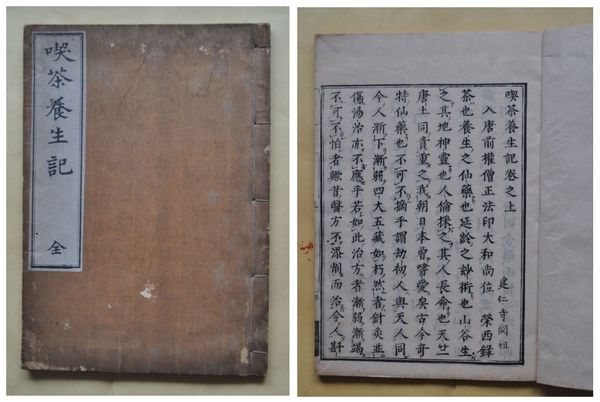 喫茶養生記
全
喫茶養生記卷之上
入唐前權僧正法印大和尚位 榮西錄
建仁寺開祖
茶也養生之仙藥也延齡之妙術也山谷生
之其地神靈也人倫採之其人長命也天竺
唐土同貴重之我朝日本曾嗜愛矣古今奇
特仙藥也不可不摘乎謂劫初人與天人同
今人漸下漸弱四大五藏如朽然者針灸並
傷湯治亦不應乎若如此治方者漸弱漸竭
不可不怕者歟昔醫方不添削而治今人斟